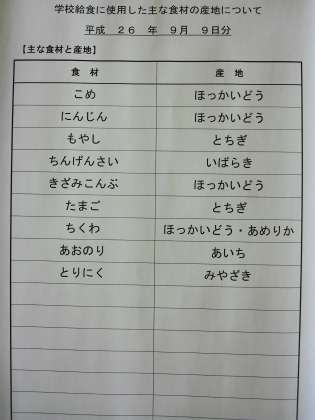 学校給食に使用した主な食材の産地について
平成 26 年 9月 9日分
【主な食材と産地】
食 材 産 地
こめ ほっかいどう
にんじん ほっかいどう
もやし とちぎ
ちんげんさい いばらき
きざみこんぶ ほっかいどう
たまご とちぎ
ちくわ ほっかいどう・あめりか
あおのり あいち
とりにく みやざき